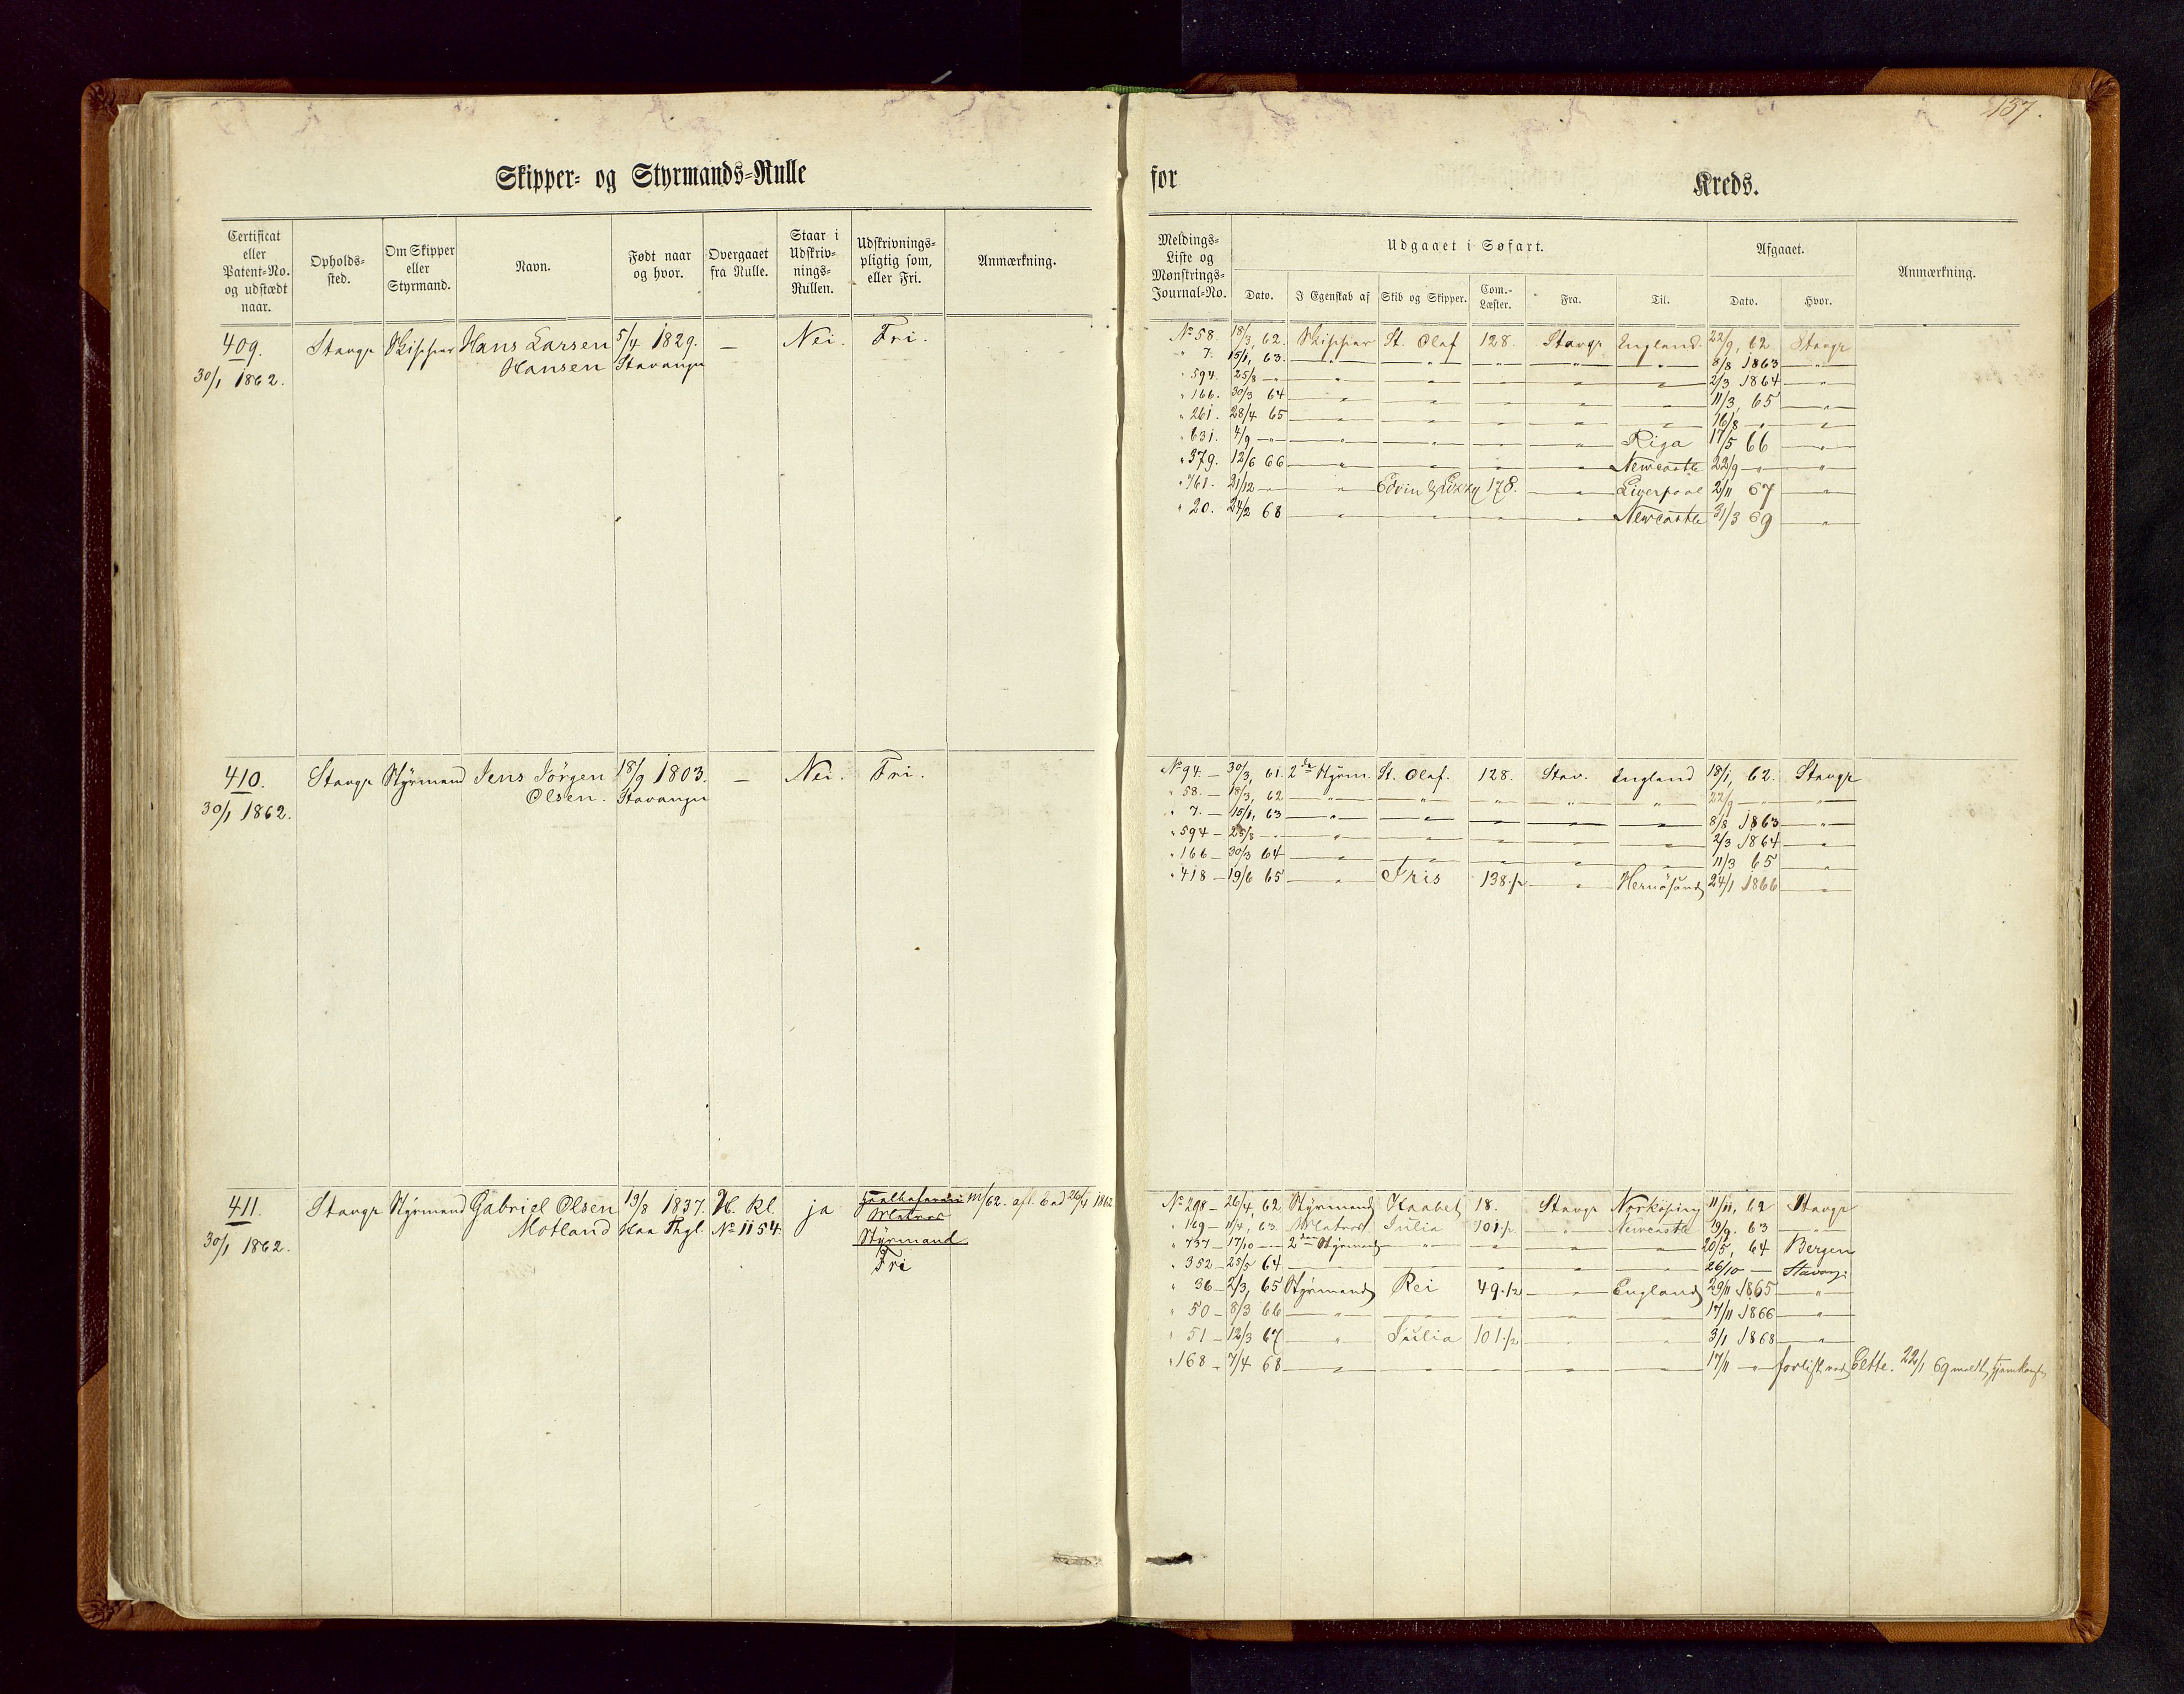 157.
Skipper- og Styrmands-Rulle for Kreds.
Certificat eller Patent-No. og udstædt naar. Opholds-sted. Om Skipper eller Styrmand. Navn. Født naar og hvor. Overgaaet fra Rulle. Staar i Udskriv-nings-Rullen. Udskrivnings-pligtig som, eller Fri. Anmærkning.
Meldings-Liste og Mønstrings-Journal-No. Udgaaet i Søfart. Afgaaet. Anmærkning.
Dato. I Egenskab af Skib og Skipper. Com.-Læster. Fra. Til. Dato. Hvor.
409. Stavgr Skipper Hans Larsen 5/4 1829. — Nei. Fri.
30/1 1862. Hansen Stavanger
No 58. 18/3, 62. Skipper St. Olaf 128. Stavgr England 22/9, 62 Stavgr
" 7. 15/1, 63. — " — " — " — " — " — 8/8 1863 — " —
" 594. 25/8 — " — " — " — " — " — " — 2/3 1864 — " —
" 166. 30/3 64 — " — " — " — " — " — 11/3, 65 — " —
" 261. 28/4 65 — " — " — " — " — " — 16/8 — " — " —
" 631. 4/9 — " — " — " — " — " — Riga 17/5 66 — " —
" 379. 12/6 66 — " — " — " — " — Newcastle 22/9 — " — " —
" 761. 21/12 — " — " — Edvin & Lizzy 178. — " — Liverpool 2/11 67 — " —
" 20. 24/2 68 — " — " — " — " — Newcastle 31/3 69 — " —
410. Stavgr Styrmand Jens Jörgen 18/9 1803. — Nei. Fri.
30/1 1862. Olsen. Stavanger
No 94. — 30/3, 61. 2de Styrm. St. Olaf. 128. Stav. England 18/1, 62. Stavgr
" 58. — 18/3, 62 — " — " — " — " — " — 22/9 — " — " —
" 7. — 15/1, 63 — " — " — " — " — " — 8/8 1863 — " —
" 594 — 25/8 — " — " — " — " — " — " — 2/3 1864 — " —
" 166 — 30/3 64 — " — " — " — " — " — 11/3 65 — " —
" 418 — 19/6 65 — " — Iris 138.1/2 — " — Hernösand 24/1 1866 — " —
411. Stavgr Styrmand Gabriel Olsen 19/8 1837. H. Kl. ja m/62. afl. 6 ad 26/4 1862
30/1 1862. Motland Haa Thgl. No 1154. Matros
Styrmand
Fri
No 298 — 26/4, 62 Styrmand Haabet 18. Stavgr Norköping 11/11, 62 Stavgr
" 169 — 11/4, 63. Matros Julia 101.1/2 — " — Newcastle 19/9. 63 — " —
" 737 — 17/10 — " — 2den Styrmand — " — " — " — " — 20/5, 64 Bergen
" 352 — 25/5 64 — " — " — " — " — " — 26/10 — Stavang.
" 36 — 2/3, 65 Styrmand Rei 49.1/2 — " — England 29/11 1865 — " —
" 50 — 8/3 66 — " — " — " — " — " — 17/11 1866 — " —
" 51 — 12/3 67 — " — Julia 101.1/2 — " — " — 3/1 1868 — " —
" 168 — 7/4 68 — " — " — " — " — " — 17/11 — " — forlist ved Cette. 22/1 69 meldt hjemkomst